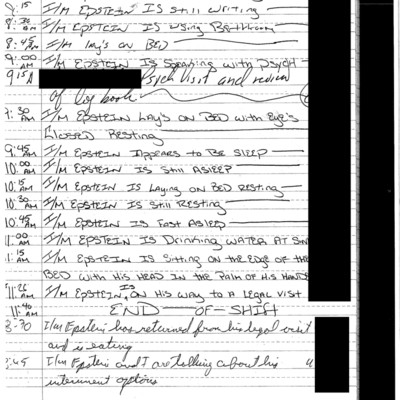 8:15 I/M EPSTEIN Is Still Writing
8:30 AM I/M EPSTEIN Is Using Bathroom
8:45 AM I/M lay's on BED
9:00 AM I/M EPSTEIN Is Speaking with Psych
9:15 A Psych visit and review
of log book
9:30 AM I/M EPSTEIN Lay's on BED with Eye's
Closed Resting
9:45 AM I/M EPSTEIN Appears to Be SLEEP
10:00 AM I/M EPSTEIN is Still ASLEEP
10:15 AM I/M EPSTEIN IS Laying on BED Resting
10:30 AM I/M EPSTEIN IS Still Resting
10:45 AM I/M EPSTEIN IS Fast ASLEEP
11:00 AM I/M EPSTEIN IS Drinking WATER AT
:15 AM I/M EPSTEIN IS Sitting on the Edge of the
BED with His HEAD IN the Palm of His HANDS
11:25 AM I/M EPSTEIN IS ON His WAY to A LEGAL Visit
11:40 AM END OF SHIFT
:30 I/m Epstein has returned from his legal visit
and is eating
:45 I/m Epstein and I are talking about his
internment options